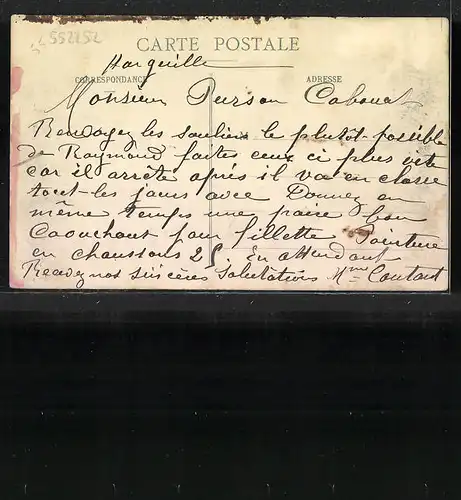 552252
CARTE POSTALE
Harqueville
CORRESPONDANCE ADRESSE
Monsieur Curson Cabouat
les souliers le plutot possible
de Raymond faites ceux ci plus vite
car il arrête après il va en classe
tout-les jours avec Donnez en
même temps une paire bon
Caouchout pour fillette Pointure
en chaussons 25. En attendant
Recevez nos sincères Salutations Mme Coutant